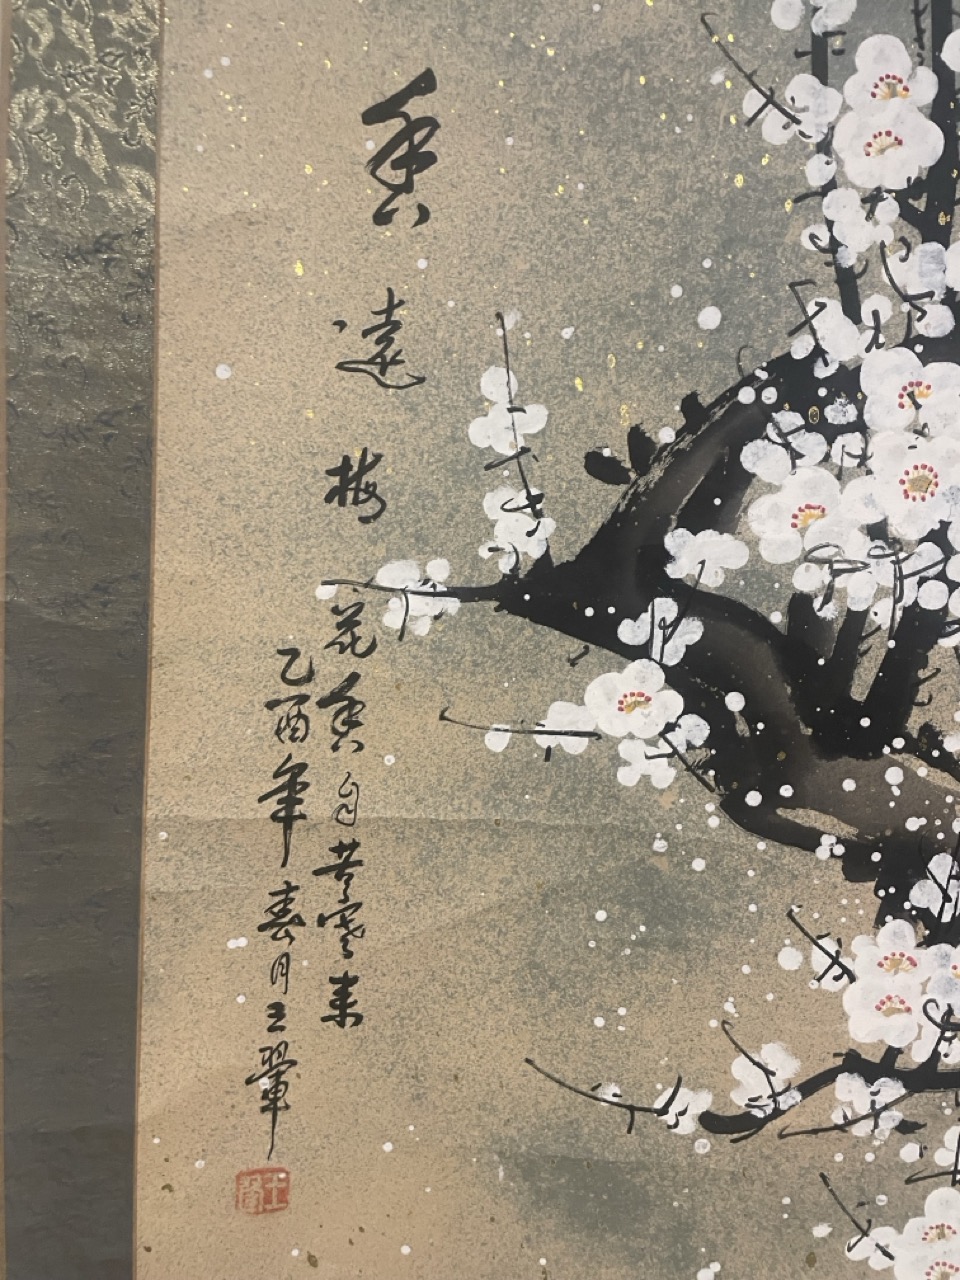 香远
梅花香自苦寒来
乙酉年春月王翚